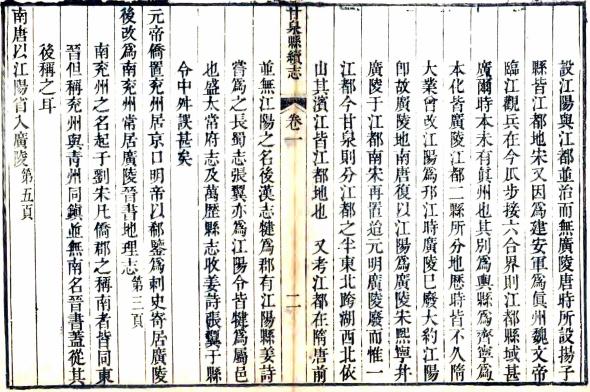 設江陽與江都並治而無廣陵唐時所設揚子
縣皆江都地宋又因爲建安軍爲眞州魏文帝
臨江觀兵在今瓜步接六合界則江都縣域甚
廣爾時本未有眞州也其別爲輿縣爲齊寧爲
本化皆廣陵江都二縣所分地歷時皆不久隋
大業曾改江陽爲邗江時廣陵巳廢大約江陽
卽故廣陵地南唐復以江陽爲廣陵宋熙寧幷
廣陵于江都南宋再置迨元明廣陵廢而惟一
江都今甘泉則分江都之半東北跨湖西北依
山其濱江皆江都地也 又考江都在隋唐前
甘泉縣續志 卷一 二
並無江陽之名後漢志犍爲郡有江陽縣姜詩
嘗爲之長蜀志張翼亦爲江陽令皆犍爲屬邑
也盛太常府志及萬歷縣志收姜詩張翼于縣
令中舛誤甚矣
元帝僑置兗州居京口明帝以郗鑒爲刺史寄居廣陵
後改爲南兗州常居廣陵晉書地理志 第三頁
南兗州之名起于劉宋凡僑郡之稱南者皆同東
晉但稱兗州與青州同鎮並無南名晉書蓋從其
後稱之耳
南唐以江陽省入廣陵 第五頁